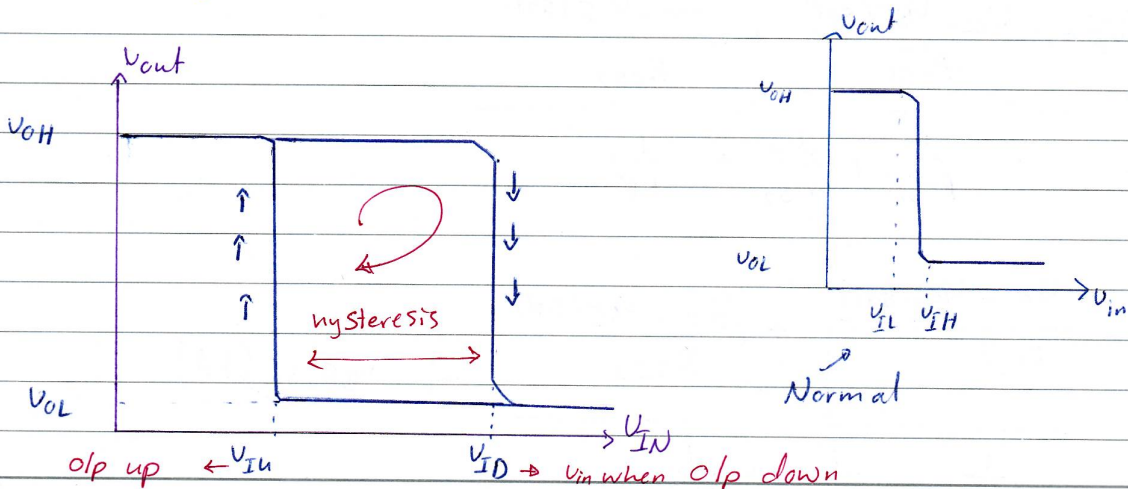 Vout
VOH
hysteresis
VOL
VIN
o/p up ← VIU
VID → Vin when o/p down
Vout
VOH
VOL
VIL VIH
Vin
Normal